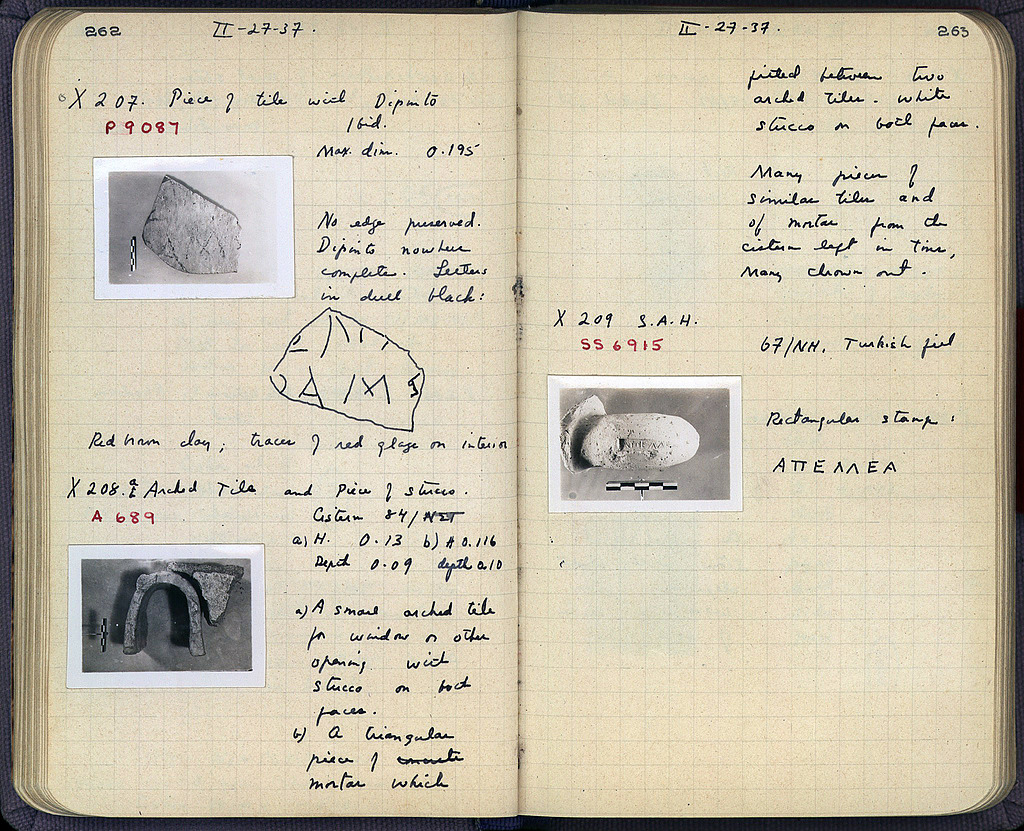 262
II-27-37.
X 207. Piece of tile with Dipinto
P 9087
Ibid.
Max. dim. 0.195
No edge preserved.
Dipinto nowhere
complete. Letters
in dull black:
Red brown clay; traces of red glaze on interior
X 208. a Arched Tile and Piece of stucco.
A 689
Cistern 84/
a) H. 0.13 b) H 0.116
Depth 0.09 depth 0.10
a) A small arched tile
for window or other
opening with
stucco on both
faces.
b) A triangular
piece of concrete
mortar which
II-27-37.
263
fitted between two
arched tiles. White
stucco on both faces.
Many pieces of
similar tiles and
of mortar from the
cistern left in tins,
Many thrown out.
X 209 S.A.H.
SS 6915
67/ΝΗ. Turkish fill
Rectangular stamp:
ΑΠΕΛΛΕΑ